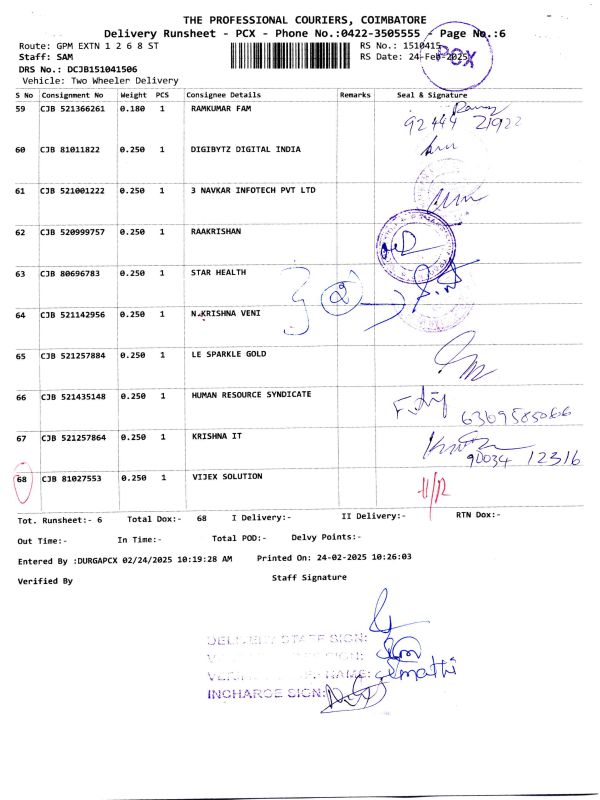 THE PROFESSIONAL COURIERS, COIMBATORE
Delivery Runsheet - PCX - Phone No.:0422-3505555 - Page No.:6
Route: GPM EXTN 1 2 6 8 ST RS No.: 1510415
Staff: SAM RS Date: 24-Feb-2025
PCX
DRS No.: DCJB151041506
Vehicle: Two Wheeler Delivery
S No Consignment No Weight PCS Consignee Details Remarks Seal & Signature
59 CJB 521366261 0.180 1 RAMKUMAR FAM
92444 21922
60 CJB 81011822 0.250 1 DIGIBYTZ DIGITAL INDIA
61 CJB 521001222 0.250 1 3 NAVKAR INFOTECH PVT LTD
62 CJB 520999757 0.250 1 RAAKRISHAN
63 CJB 80696783 0.250 1 STAR HEALTH
2
64 CJB 521142956 0.250 1 N.KRISHNA VENI
65 CJB 521257884 0.250 1 LE SPARKLE GOLD
66 CJB 521435148 0.250 1 HUMAN RESOURCE SYNDICATE
67 CJB 521257864 0.250 1 KRISHNA IT
90034 12316
68 CJB 81027553 0.250 1 VIJEX SOLUTION
Tot. Runsheet:- 6 Total Dox:- 68 I Delivery:- II Delivery:- RTN Dox:-
Out Time:- In Time:- Total POD:- Delvy Points:-
Entered By :DURGAPCX 02/24/2025 10:19:28 AM Printed On: 24-02-2025 10:26:03
Verified By Staff Signature
DELIVERY STAFF SIGN:
SIGN:
NAME:
INCHARGE SIGN: